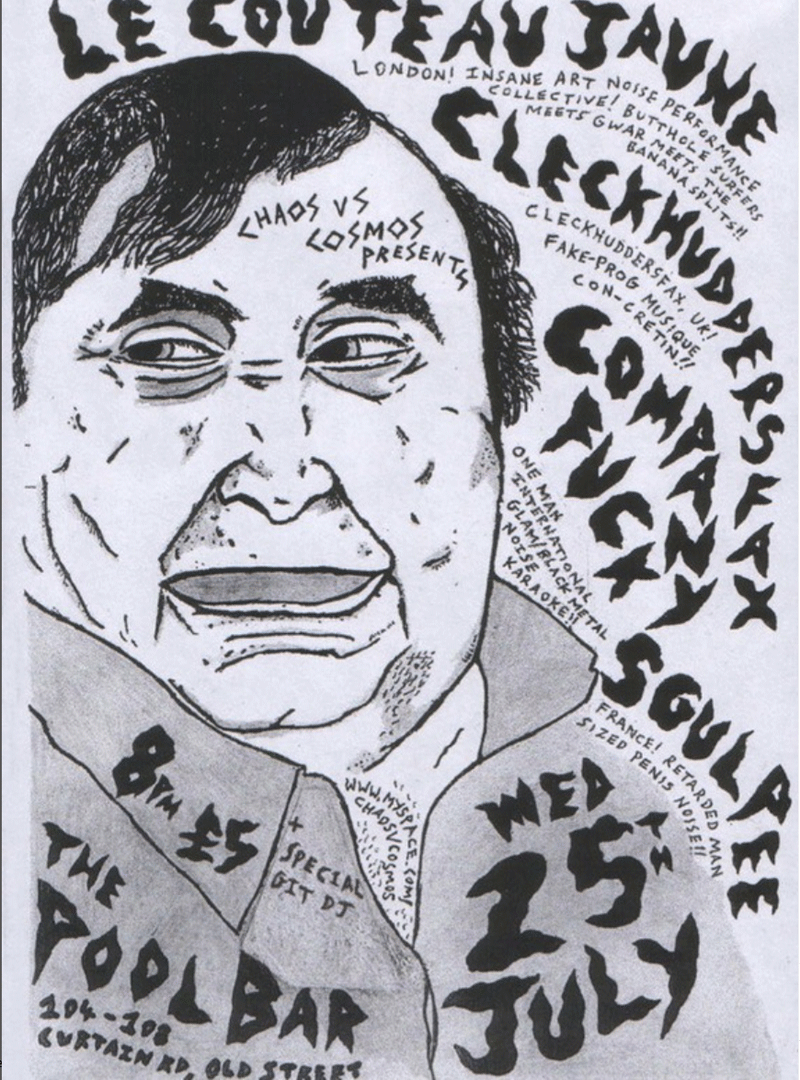 LE COUTEAU JAUNE
LONDON! INSANE ART NOISE PERFORMANCE
COLLECTIVE! BUTTHOLE SURFERS
MEETS GWAR MEETS THE
BANANA SPLITS!!
CLECKHUDDERSFAX
CLECKHUDDERSFAX, UK!
FAKE-PROG MUSIQUE
CON-CRETIN!!
CHAOS VS
COSMOS
PRESENTS
COMPANY
FUCK
ONE MAN
INTERNATIONAL
GLAM/BLACK METAL
NOISE
KARAOKE!!
SGULPEE
FRANCE! RETARDED MAN
SIZED PENIS NOISE!!
8PM £5
+
SPECIAL
GIT DJ
WWW.MYSPACE.COM/
CHAOSVCOSMOS
WED
25TH
JULY
THE
POOL BAR
104-108
CURTAIN RD, OLD STREET